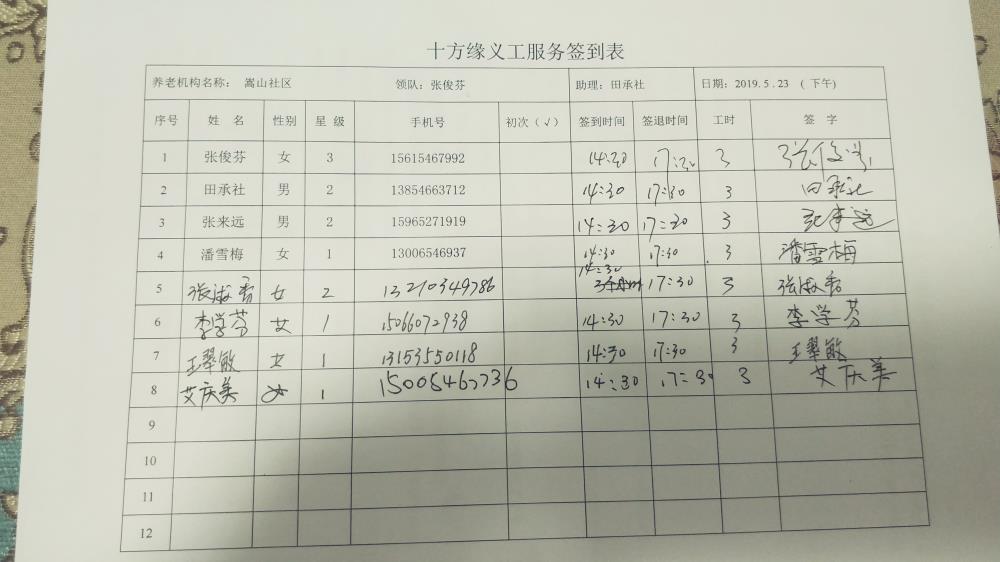 十方缘义工服务签到表
养老机构名称: 嵩山社区 领队: 张俊芬 助理: 田承社 日期: 2019.5.23 (下午)
序号 姓 名 性别 星 级 手机号 初次（√） 签到时间 签退时间 工时 签 字
1 张俊芬 女 3 15615467992 14:30 17:30 3 张俊芬
2 田承社 男 2 13854663712 14:30 17:30 3 田承社
3 张来远 男 2 15965271919 14:30 17:30 3 张来远
4 潘雪梅 女 1 13006546937 14:30 17:30 3 潘雪梅
5 张淑香 女 2 13210349786 14:30 17:30 3 张淑香
6 李学芬 女 1 15066072938 14:30 17:30 3 李学芬
7 王翠敏 女 1 13153550118 14:30 17:30 3 王翠敏
8 艾庆美 女 1 14:30 17:30 3 艾庆美
9
10
11
12